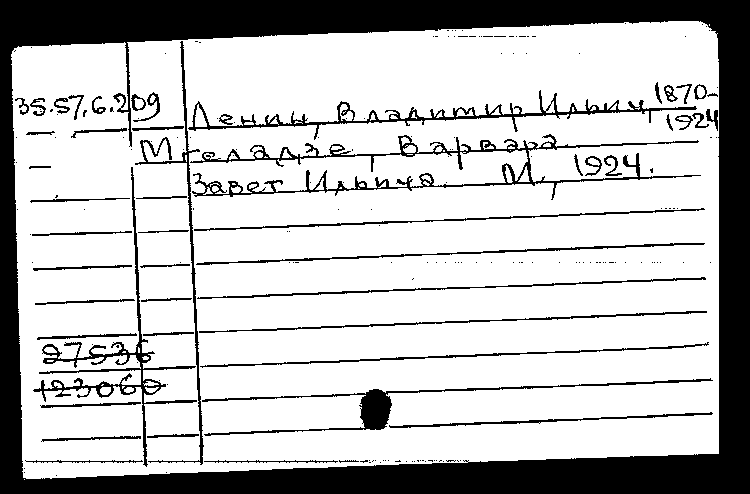 35.57.6.209 Ленин, Владимир Ильич, 1870-1924
Мгеладзе, Варвара.
Завет Ильича. М., 1924.
27536
123060